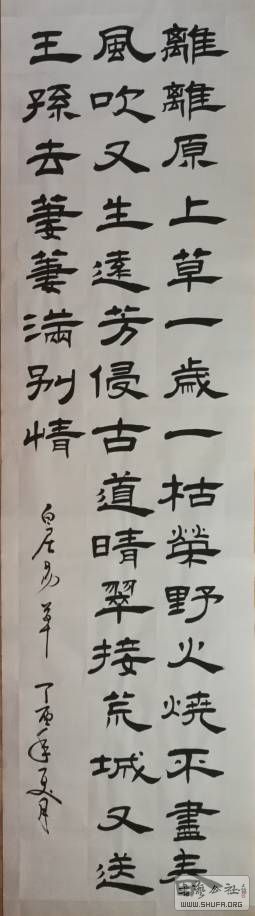 離離原上草一歲一枯榮野火燒不盡春
風吹又生遠芳侵古道晴翠接荒城又送
王孫去萋萋滿別情
白居易草 丁酉年夏月
書法公社
WWW.SHUFA.ORG